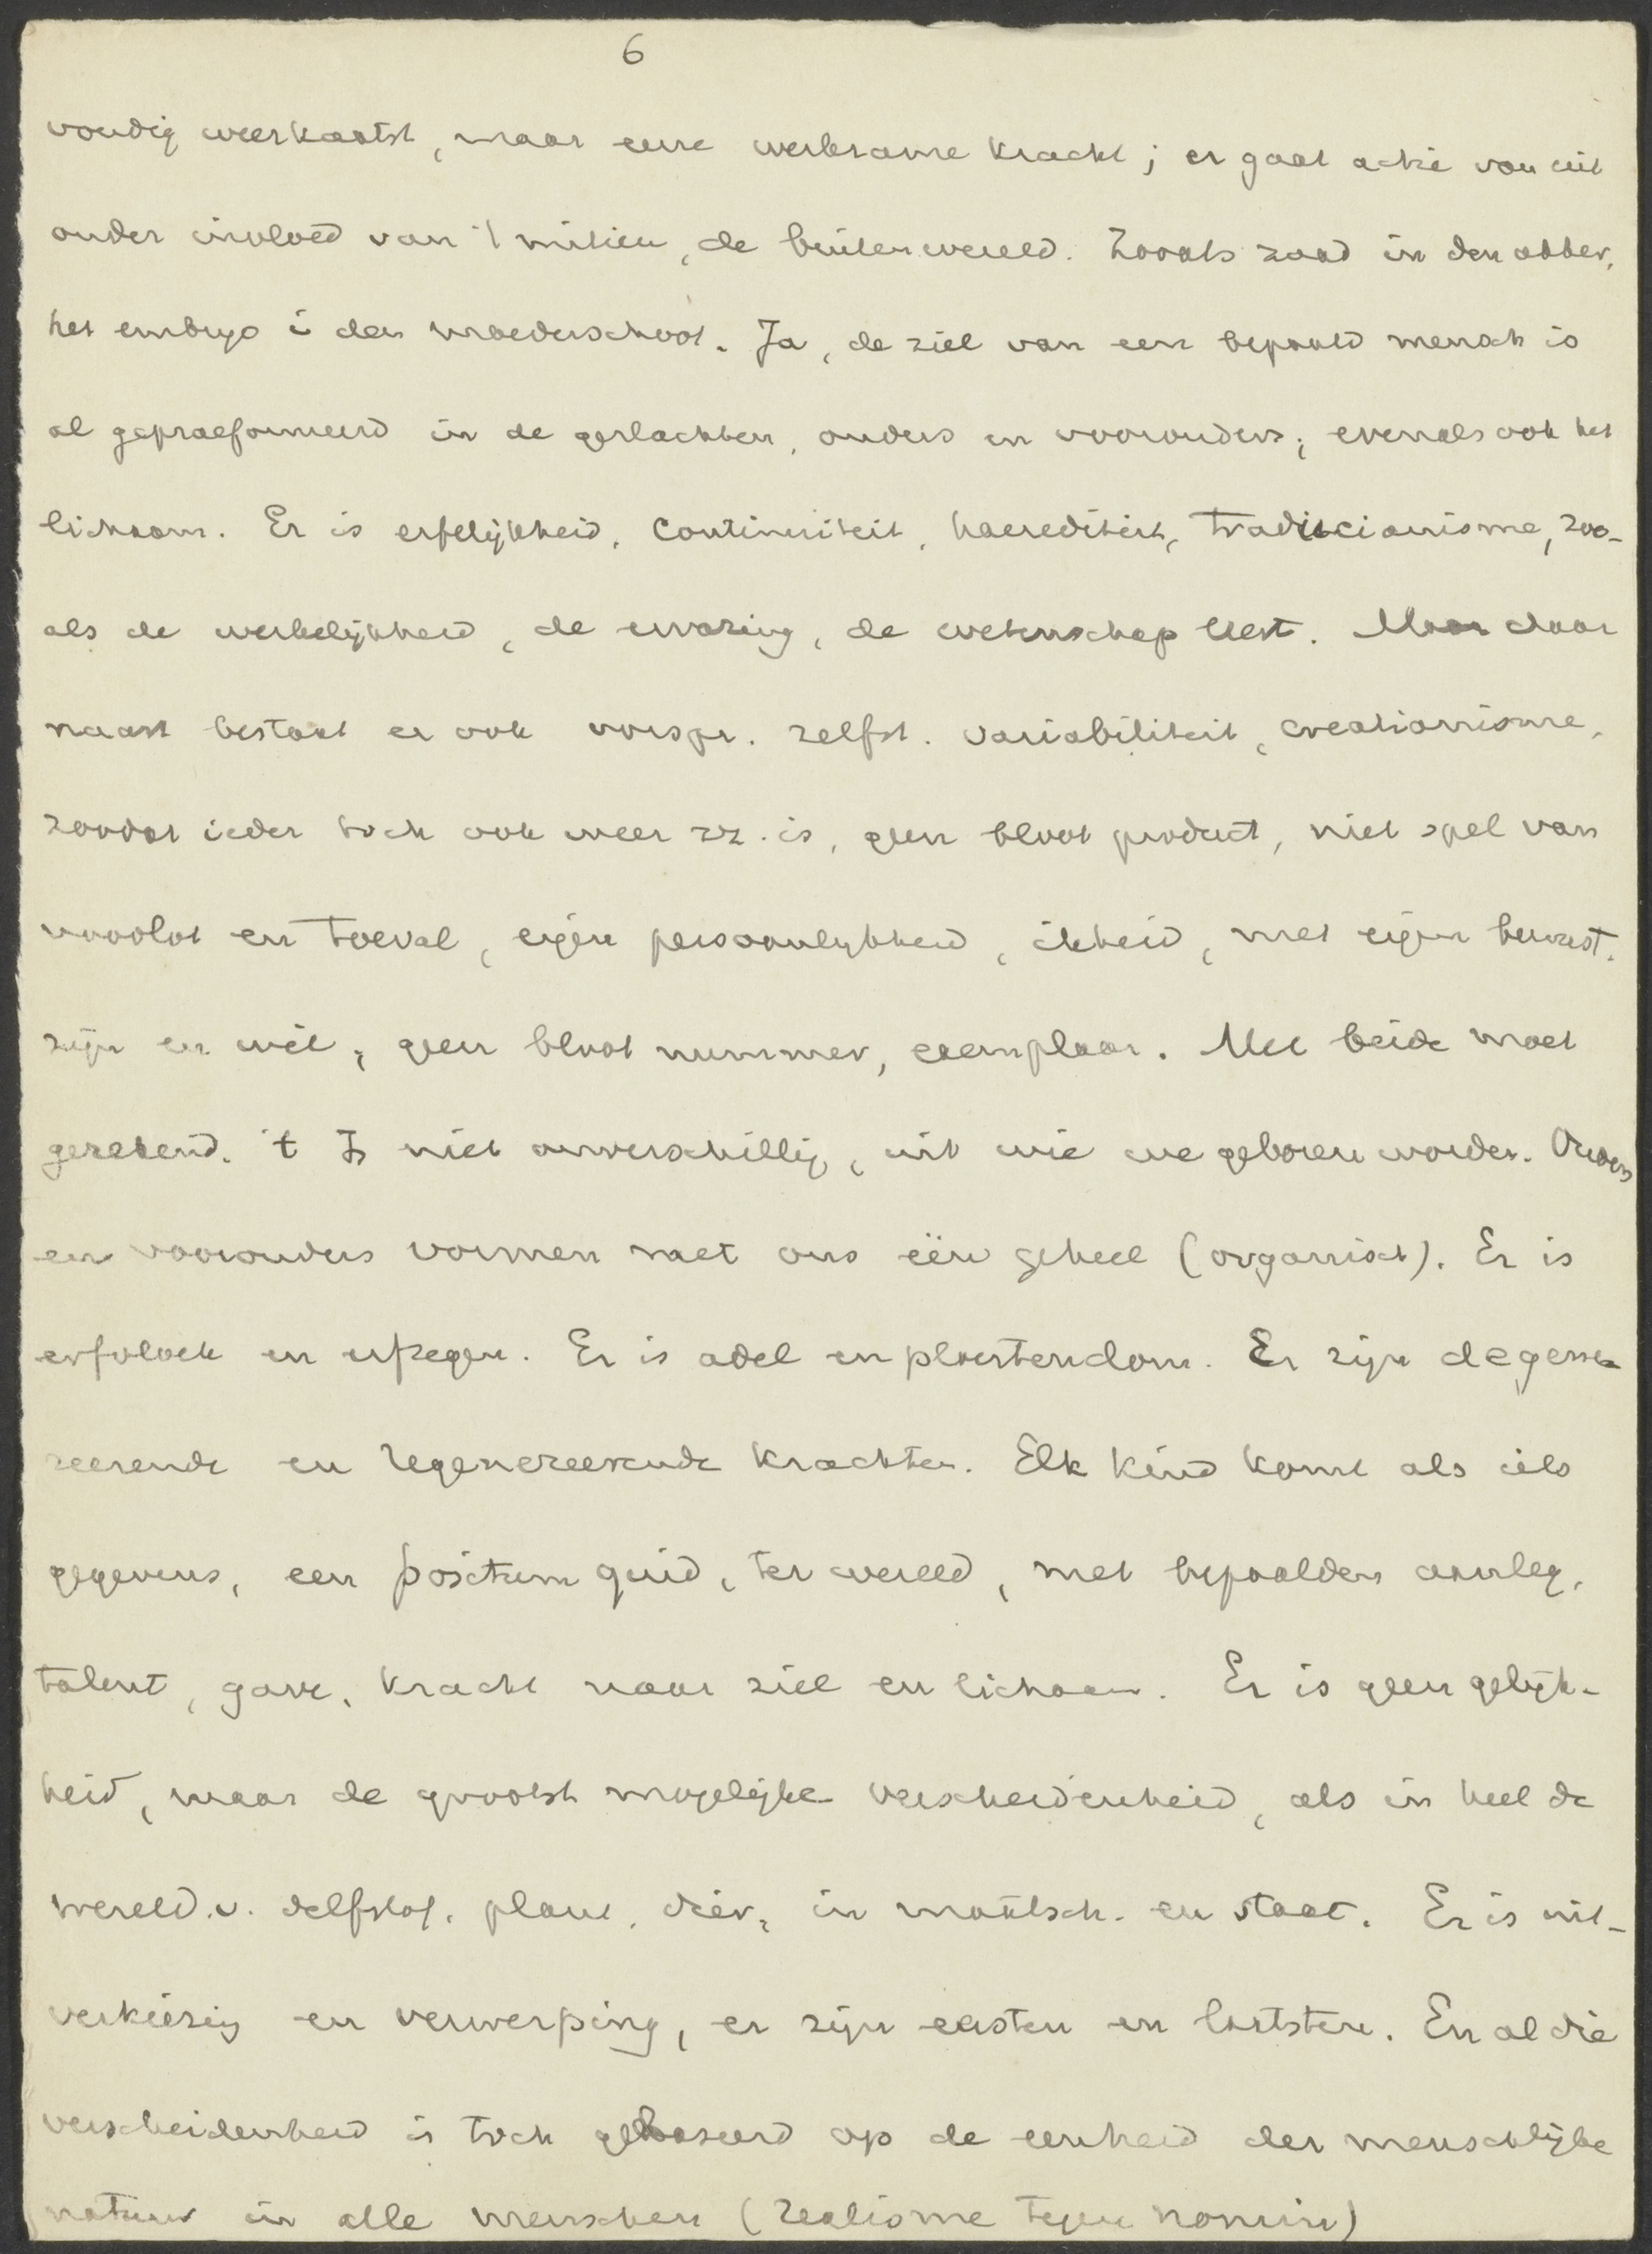 6
voudig weerkaatst, maar eene werkzame kracht; er gaat actie van uit
onder invloed van 't milieu, de buitenwereld. Zooals zaad in den akker,
het embryo i den moederschoot. Ja, de ziel van een bepaald mensch is
al gepraeformeerd in de geslachten, ouders en voorouders; evenals ook het
lichaam. Er is erfelijkheid, continuiteit, haerediteit, traditcianisme, zoo-
als de werkelijkheid, de ervaring, de wetenschap leert. Maar daar
naast bestaat er ook oorspr. zelfst. variabiliteit, creatianisme,
zoodat ieder toch ook weer zz. is, geen bloot product, niet spel van
noodlot en toeval, eigen persoonlijkheid, ikheid, met eigen bewust.
zijn en wil, geen bloot nummer, exemplaar. Met beide moet
gerekend. 't Is niet onverschillig, uit wie we geboren worden. Ouders
en voorouders vormen met ons één geheel (organisch). Er is
erfvloek en erfzegen. Er is adel en ploertendom. Er zijn degene
reerende en regenereerende krachten. Elk kind komt als iets
gegevens, een positum quid, ter wereld, met bepaalden aanleg,
talent, gave, kracht naar ziel en lichaam. Er is geen gelijk-
heid, maar de grootst mogelijke verscheidenheid, als in heel de
wereld v. delfstof, plant, dier, in maatsch. en staat. Er is uit-
verkiezing en verwerping, er zijn eersten en laatsten. En al die
verscheidenheid is toch gebaseerd op de eenheid der menschlijke
natuur in alle menschen (realisme tegen nomin)